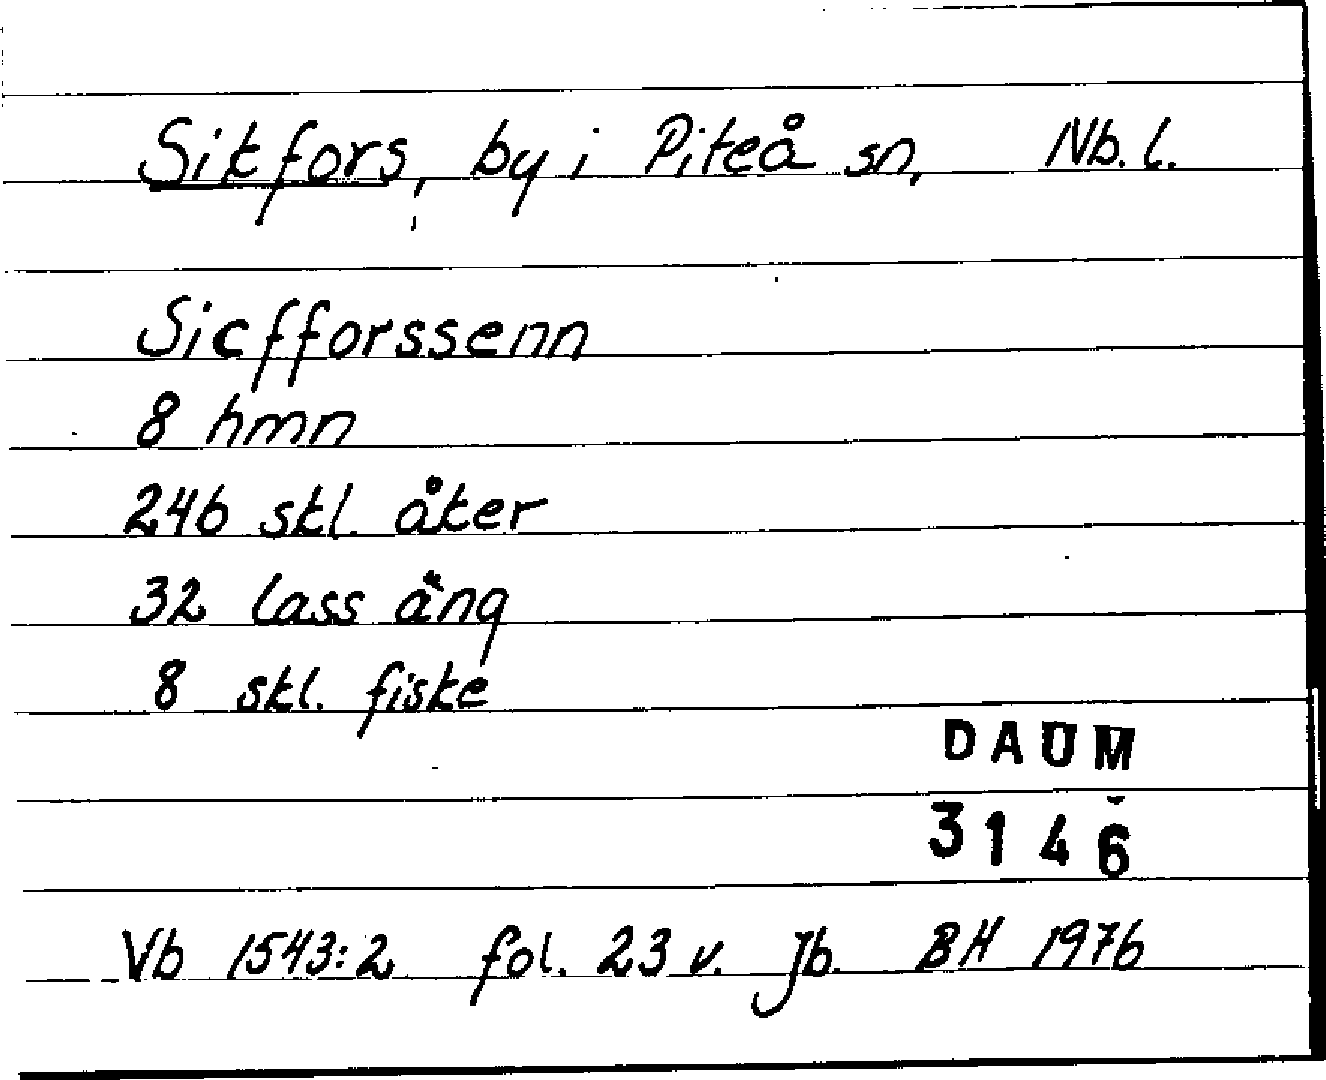 Sikfors, by i Piteå sn, Nb. l.
Sicfforssenn
8 hmn
246 skl. åker
32 lass äng
8 skl. fiske
DAUM
3146
Vb 1543:2 fol. 23 v. Jb. BH 1976